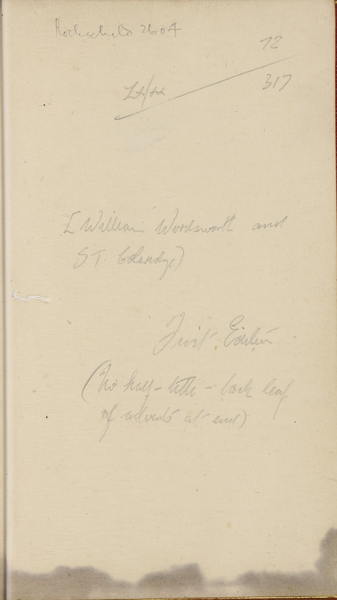 Rothschild 2604
72
L+/++
317
[William Wordsworth and
S.T. Coleridge)
First Edition
(No half-title - lack leaf
of adverts at end)